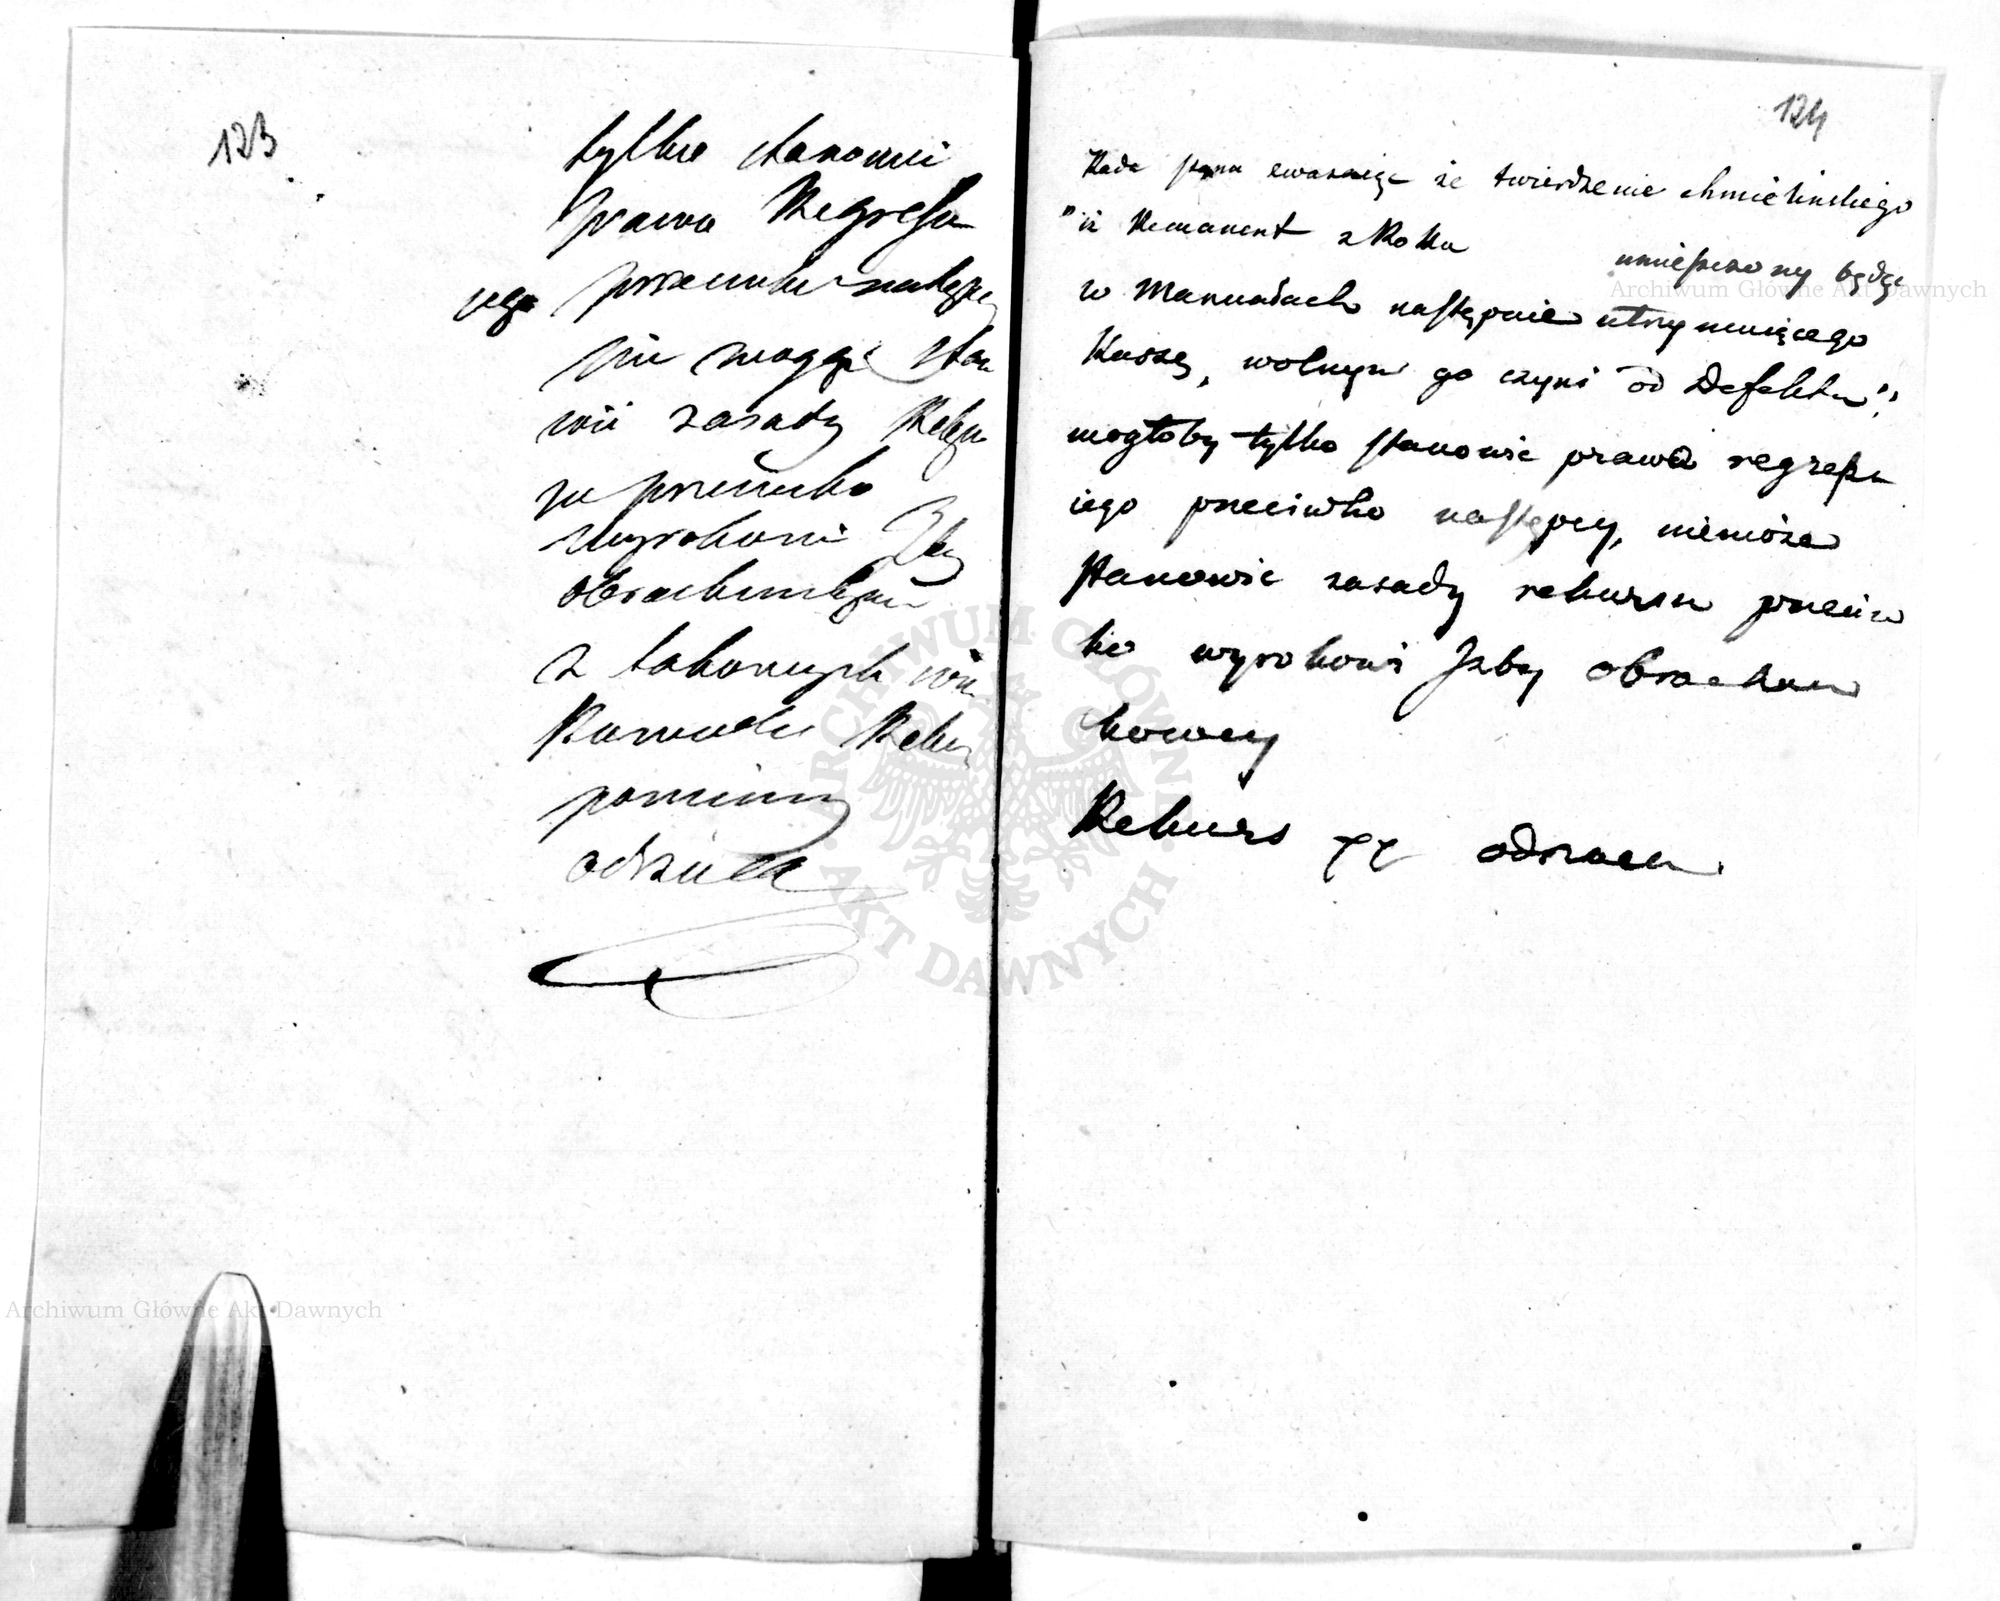 123
tylko stanowić
prawo Regressu
jego przeciwko następcy
nie mogąc stano
wić zasady Rekur
su przeciwko
wyrokowi Izby
obrachunkowey
z takowych wię
Powodu Reku
pominiony
odrzuca
124
Rada stanu zważaiąc że twierdzenie Chmielinskiego
"iż Remanent z Roku umieszczony będąc
w Manualach następnie utrzymuiącego
Kassę, wolnym go czyni od Defektu"
mogłoby tylko stanowic prawo regressu
iego przeciwko następcy, niemoże
stanowic zasady rekursu przeciw
ko wyrokowi Jzby obrachun
kowey
Rekurs odrzuca
Archiwum Główne Akt Dawnych
Archiwum Główne Akt Dawnych
ARCHIWUM GŁÓWNE AKT DAWNYCH